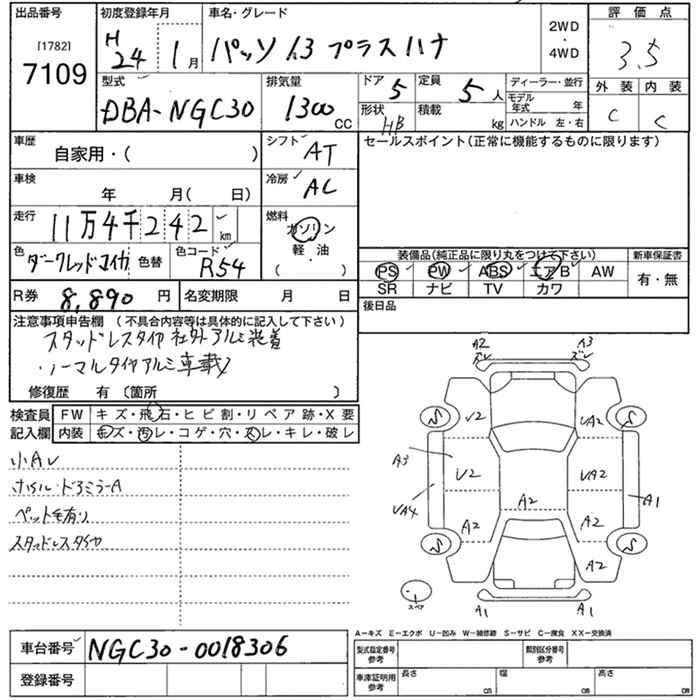 出品番号
[1782]
7109
初度登録年月
H 24 1月
車名・グレード
パッソ 1.3 プラスハナ
2WD
・
4WD
評価点
3.5
外装 内装
C C
型式
DBA-NGC30
排気量
1300 CC
ドア 5
定員 5人
形状 HB
積載 kg
ディーラー・並行
モデル年式 年
ハンドル 左・右
車歴
自家用・( )
シフト AT
セールスポイント(正常に機能するものに限ります)
車検
年 月( 日)
冷房 AC
走行
11万4千242km
燃料
ガソリン
軽・油
( )
色
色替
色コード
R54
装備品(純正品に限り丸をつけて下さい)
新車保証書
PS PW ABS エアB AW
SR ナビ TV カワ
有・無
R券 8,890円
名変期限 月 日
後日品
注意事項申告欄 (不具合内容等は具体的に記入して下さい)
スタッドレスタイヤ 社外アルミ装着
・ノーマルタイヤアルミ車載
修復歴 有 〔箇所 〕
検査員記入欄
FW キズ・飛石・ヒビ割・リペア跡・X要
内装 キズ・汚レ・コゲ・穴・スレ・キレ・破レ
小AU
ホイル・ドアミラーA
ペット毛有り
スタッドレスタイヤ
A2 A3
ズレ ズレ
S S
U2 UA2
A3
U2 UA2
UA4 A2 A1
A2 A2
S S
A2
スペア
A1 A1
A-キズ E-エクボ U-凹み W-補修跡 S-サビ C-腐食 XX-交換済
車台番号 NGC30-0018306
登録番号
型式指定番号 参考
類別区分番号 参考
車庫証明用 参考
長さ cm 幅 cm 高さ cm